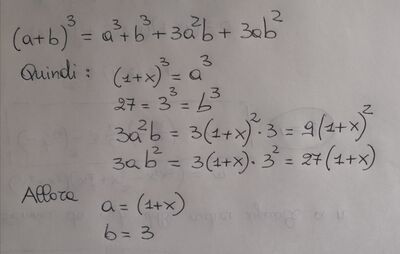 (a+b)³ = a³+b³+3a²b+3ab²
Quindi: (1+x)³ = a³
27 = 3³ = b³
3a²b = 3(1+x)²·3 = 9(1+x)²
3ab² = 3(1+x)·3² = 27(1+x)
Allora a = (1+x)
b = 3